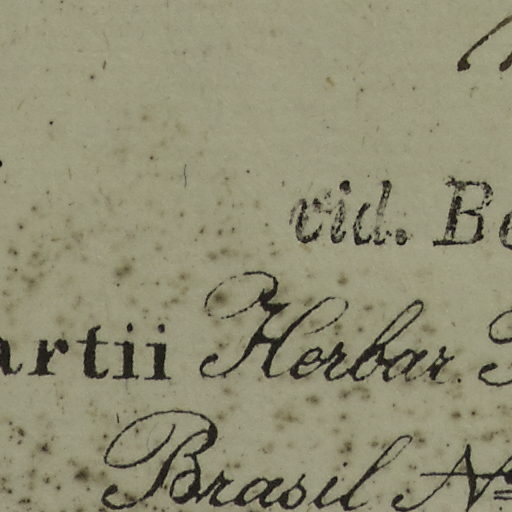 vid. Be
artii Herbar.
Brasil Nº